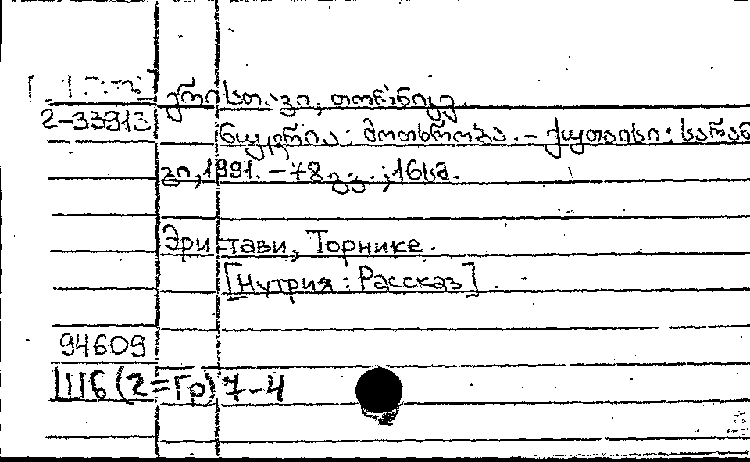 ერისთავი, თორნიკე.
2-33913
ნუტრია : მოთხრობა. – ქუთაისი : სარან
გი, 1991. – 78 გვ. ; 16 სმ.
Эристави, Торнике.
[Нутрия : Рассказ]
94609
Ш6(2=Гр)7-4